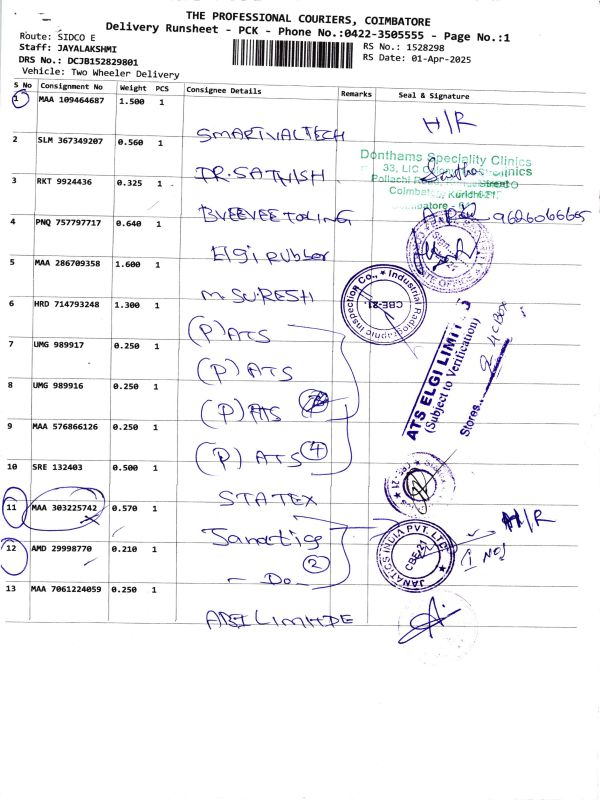 THE PROFESSIONAL COURIERS, COIMBATORE
Delivery Runsheet - PCK - Phone No.:0422-3505555 - Page No.:1
Route: SIDCO E
RS No.: 1528298
Staff: JAYALAKSHMI
RS Date: 01-Apr-2025
DRS No.: DCJB152829801
Vehicle: Two Wheeler Delivery
S No Consignment No Weight PCS Consignee Details Remarks Seal & Signature
1 MAA 109464687 1.500 1 SMARTVALTECH H/R
2 SLM 367349207 0.560 1 DR.SATHISH
Donthams Speciality Clinics
33, LIC
3 RKT 9924436 0.325 1 BVEEVEE TOLING 9626066665
4 PNQ 757797717 0.640 1 Elgi rubber
5 MAA 286709358 1.600 1 M.SURESH
Industrial Radiographic Inspection Co., CBE-21.
6 HRD 714793248 1.300 1 (P) ATS
7 UMG 989917 0.250 1 (P) ATS
ATS ELGI LIMIT
(Subject to Verification)
Stores
8 UMG 989916 0.250 1 (P) ATS
9 MAA 576866126 0.250 1 (P) ATS 4
10 SRE 132403 0.500 1 STATEX
11 MAA 303225742 0.570 1 Janatics H/R
JANATICS INDIA PVT. LTD. CBE-21
12 AMD 29998770 0.210 1 - Do - 2
13 MAA 7061224059 0.250 1